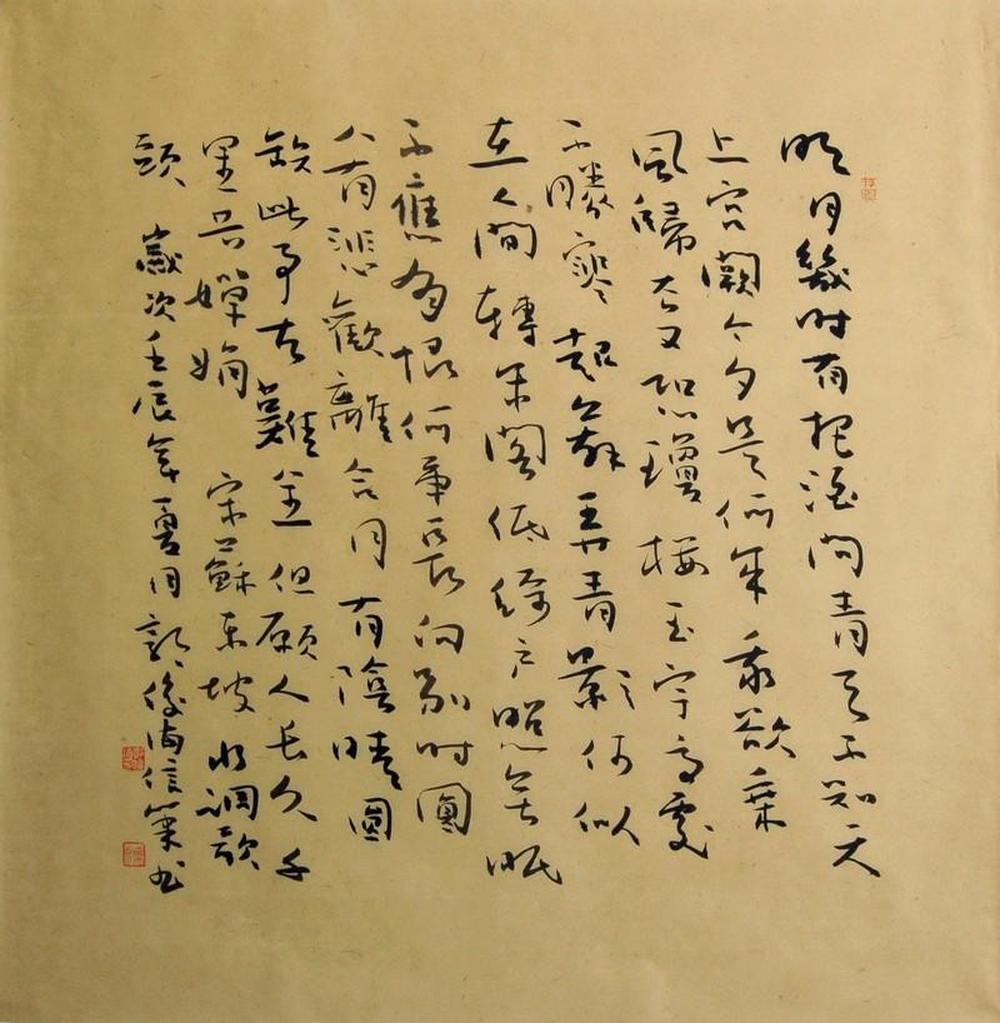 明月幾時有把酒問青天不知天
上宮闕今夕是何年我欲乘
風歸去又恐瓊樓玉宇高處
不勝寒起舞弄青影何似
在人間轉朱閣低綺戶照無眠
不應有恨何事長向別時圓
人有悲歡離合月有陰晴圓
缺此事古難全但願人長久千
里共嬋娟 宋蘇東坡 水調歌
頭 歲次壬辰年夏月 信筆書